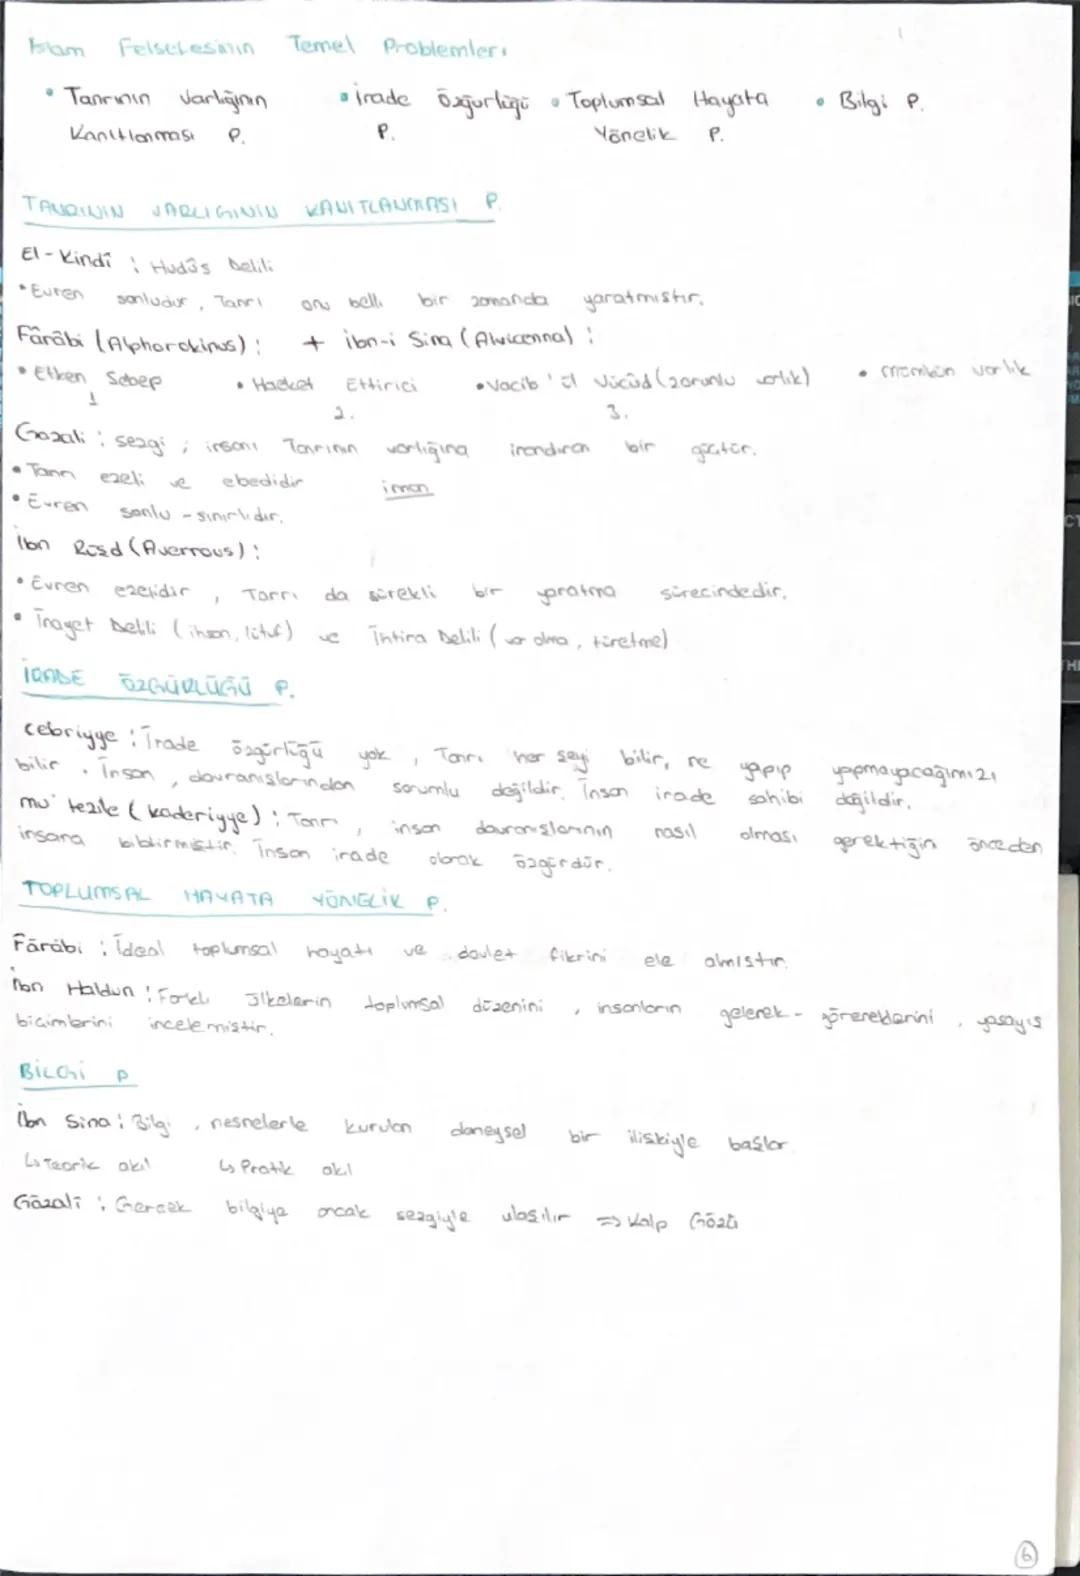 İslam Felsefesinin Temel Problemleri
• Tanrının Varlığının • İrade Özgürlüğü • Toplumsal Hayata • Bilgi P.
Kanıtlanması P. P. Yönelik P.
TANRININ VARLIĞININ KANITLANMASI P.
El-Kindî : Hudûs Delili
• Evren sonludur, Tanrı onu belli bir zamanda yaratmıştır.
Fârâbi (Alphorokinus) : + ibn-i Sina (Alvicenna) :
• Etken Sebep • Hareket Ettirici • Vacib'ül Vücûd (zorunlu varlık) • mümkün varlık
1 2. 3.
Gazali : sezgi ; insanı Tanrının varlığına inandıran bir güçtür.
• Tanrı ezeli ve ebedidir iman
• Evren sonlu - sınırlıdır.
İbn Rüşd (Averrous) :
• Evren ezelidir, Tanrı da sürekli bir yaratma sürecindedir.
• İnayet Delili (ihsan, lütuf) ve İhtira Delili (var olma, türetme)
İRADE ÖZGÜRLÜĞÜ P.
Cebriyye : İrade özgürlüğü yok, Tanrı her şeyi bilir, ne yapıp yapmayacağımızı
bilir. İnsan, davranışlarından sorumlu değildir. İnsan irade sahibi değildir.
mu'tezile (kaderiyye) : Tanrı, insan davranışlarının nasıl olması gerektiğin önceden
insana bildirmiştir. İnsan irade olarak özgürdür.
TOPLUMSAL HAYATA YÖNELİK P.
Fârâbi : İdeal toplumsal hayatı ve devlet fikrini ele almıştır.
İbn Haldun : Farklı ülkelerin toplumsal düzenini, insanların gelenek - göreneklerini, yaşayış
biçimlerini incelemiştir.
BİLGİ P
İbn Sina : Bilgi, nesnelerle kurulan deneysel bir ilişkiyle başlar.
↳ Teorik akıl ↳ Pratik akıl
Gâzalî : Gerçek bilgiye ancak sezgiyle ulaşılır ⇒ Kalp Gözü
6